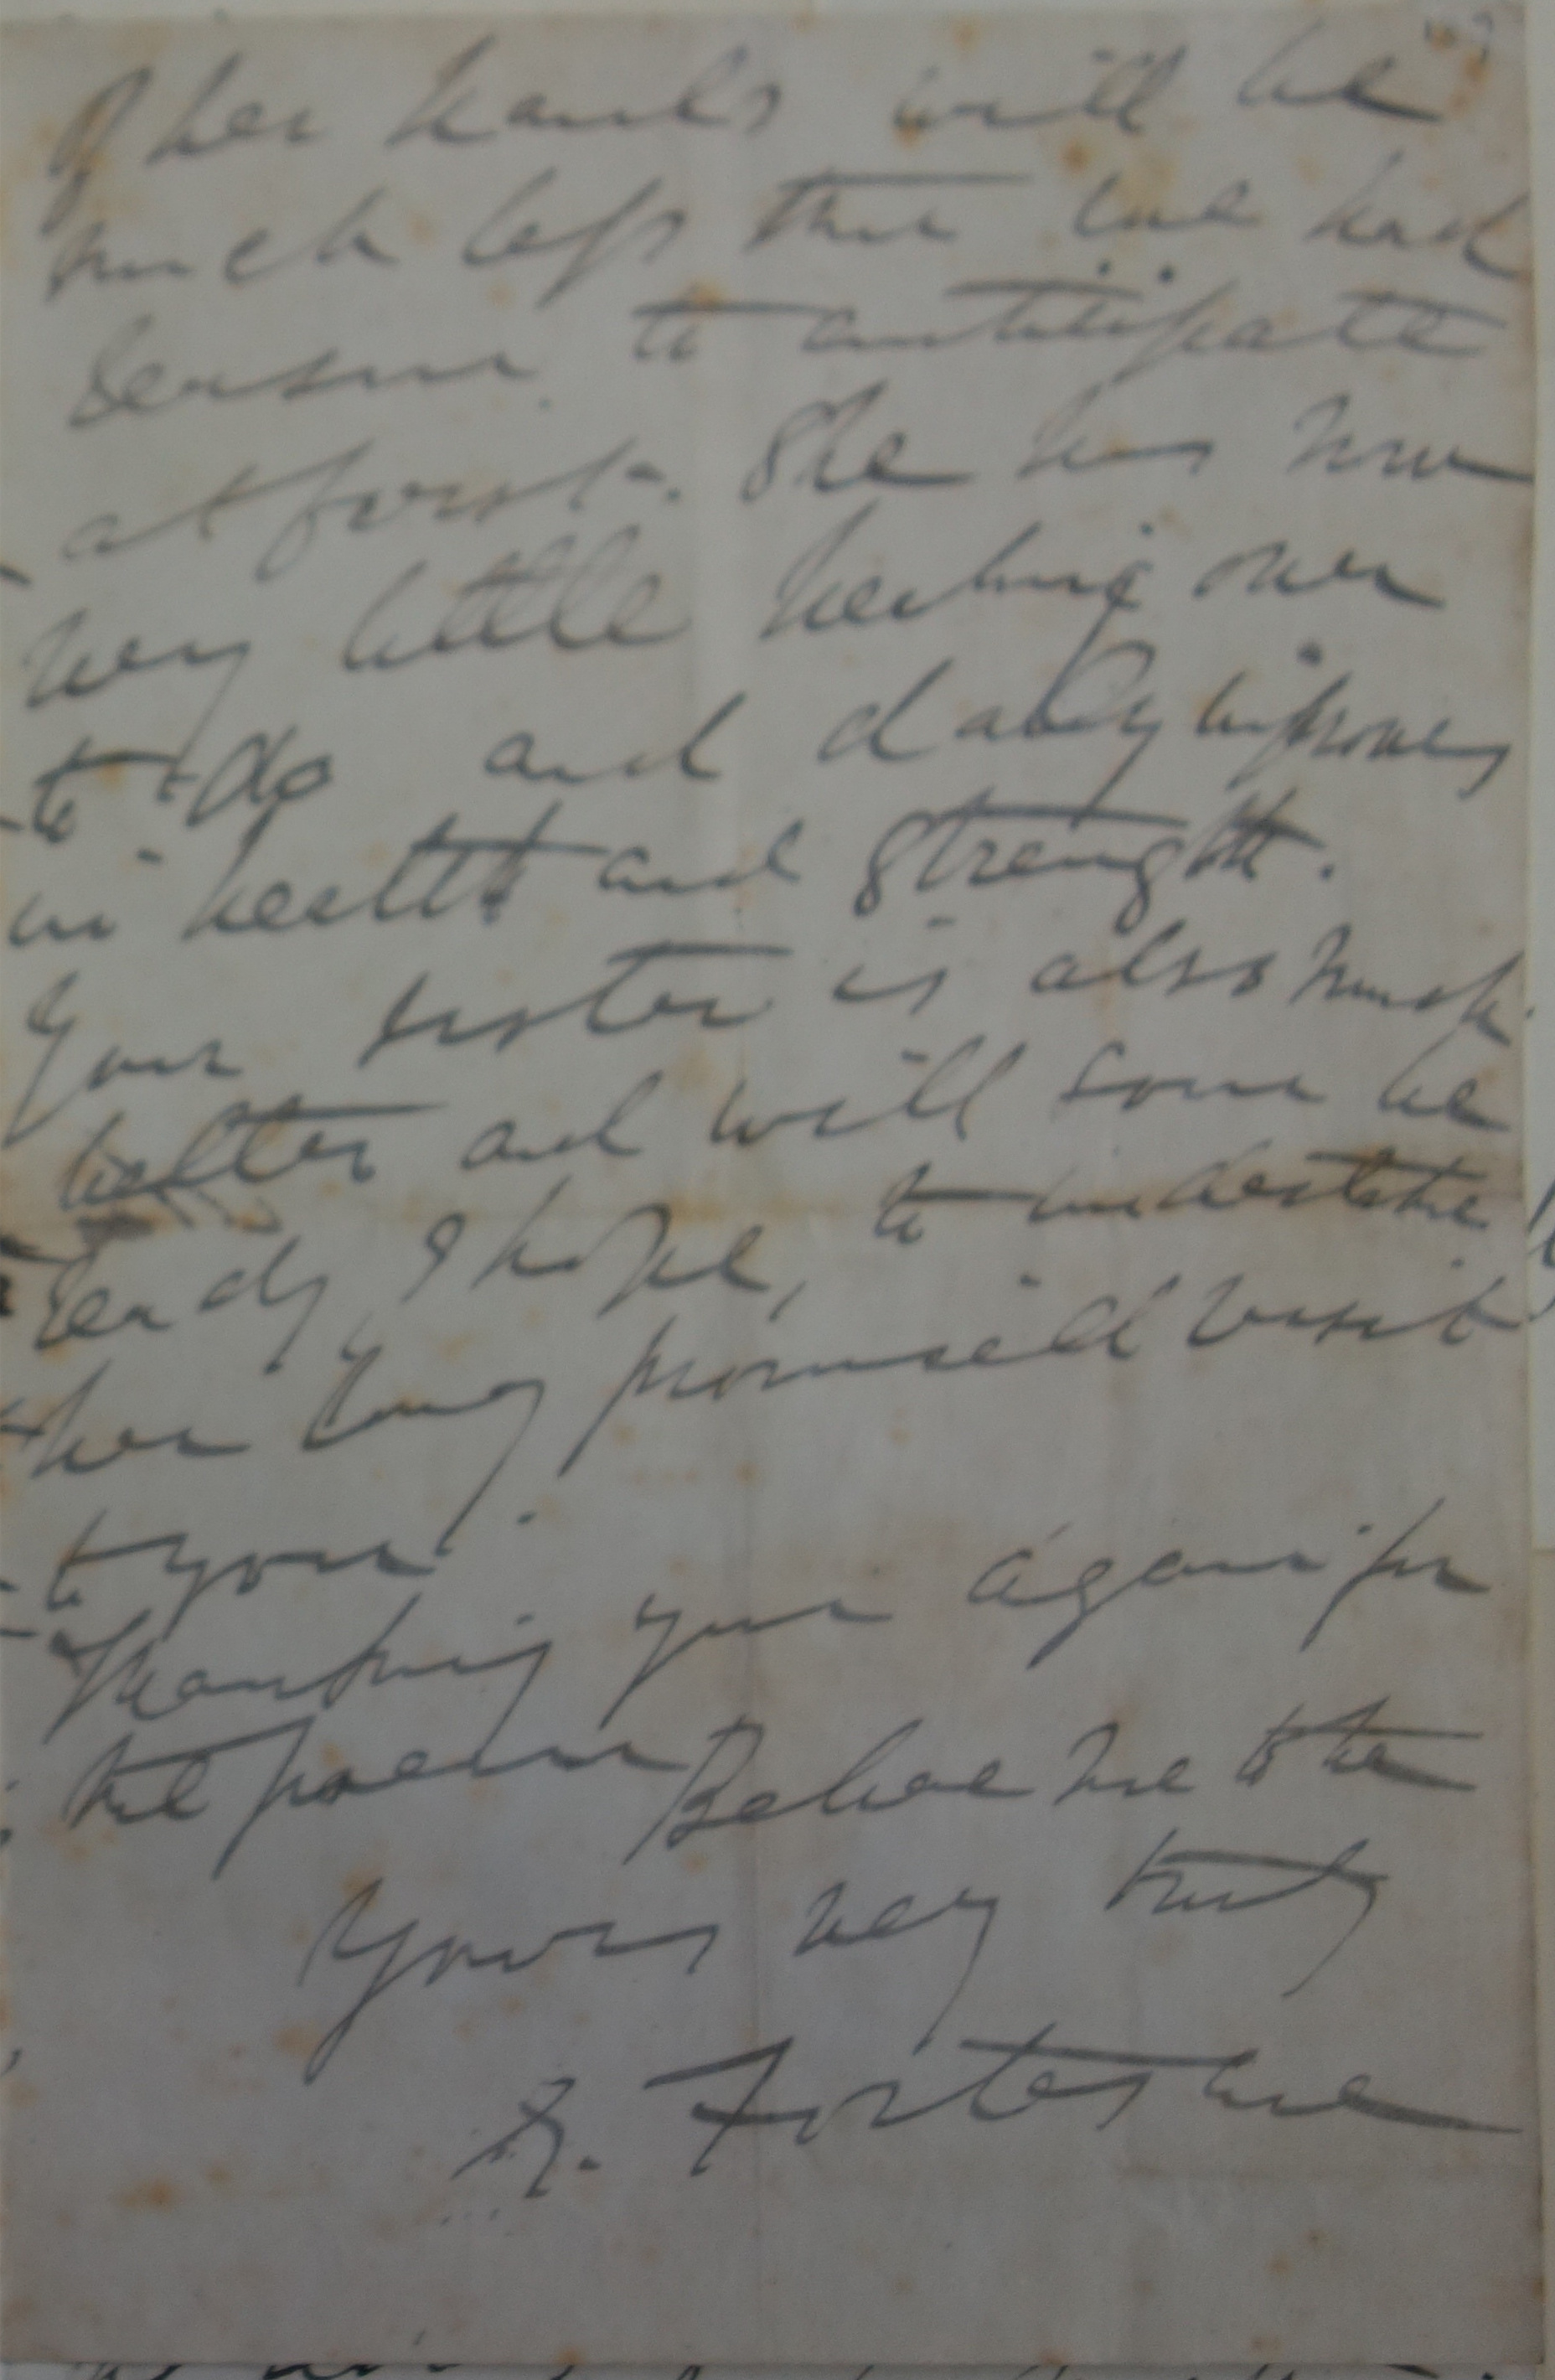 of her hands will be
much less than we had
reason to anticipate
at first. She has now
very little healing over
to do and daily improves
in health and strength.
Your sister is also much
better and will soon be
ready, I hope, to undertake
her long promised visit
to you.
Thanking you again for
the poem Believe me to be
Yours very truly
Fortescue